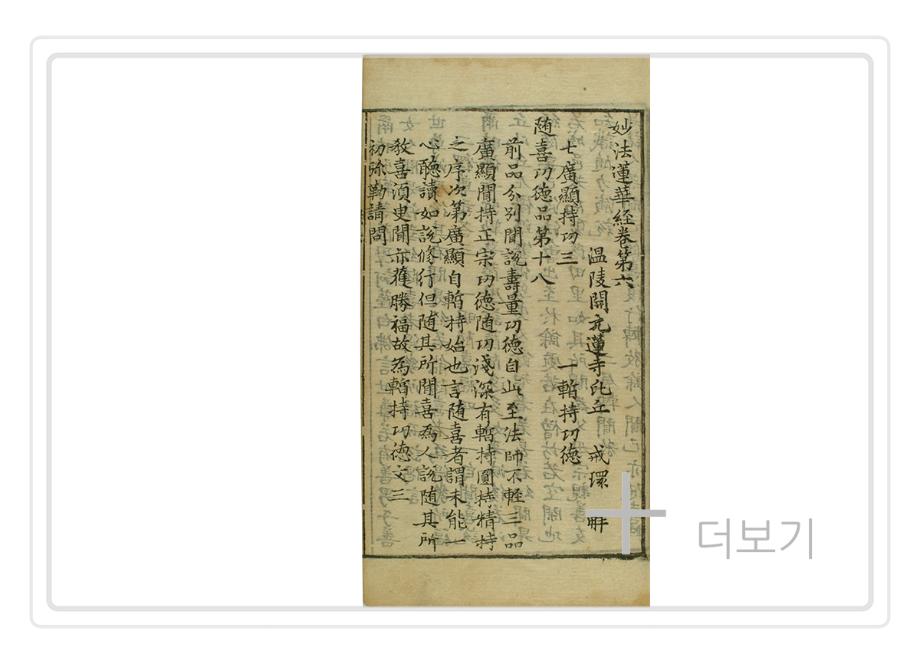 妙法蓮華経卷第六
温陵開元蓮寺比丘 戒環 解
七廣顯持功三 一暫持功德
随喜功德品第十八
前品分別聞說壽量功德自此至法師不輕三品
廣顯聞持正宗功德随功淺深有暫持圓持精持
之序次第廣顯自暫持始也言随喜者謂未能一
心聴讀如說修行但随其所聞喜為人說随其所
教喜須臾聞亦獲勝福故為暫持功德文三
初弥勒請問
더보기